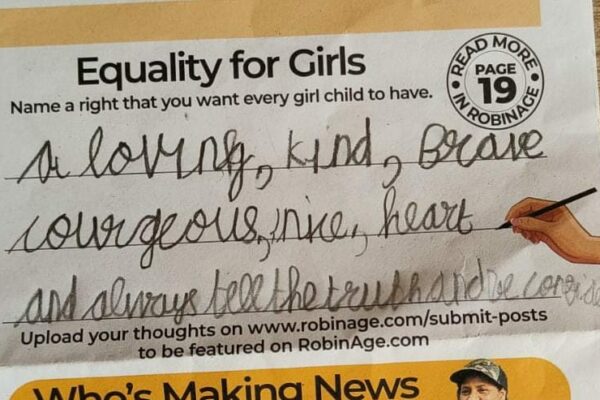 Equality for Girls
Name a right that you want every girl child to have.
READ MORE
PAGE
19
IN ROBINAGE
a loving, kind, Brave
courgeous, nice, heart
and always tell the truth and be conside
Upload your thoughts on www.robinage.com/submit-posts
to be featured on RobinAge.com
Who's Making News